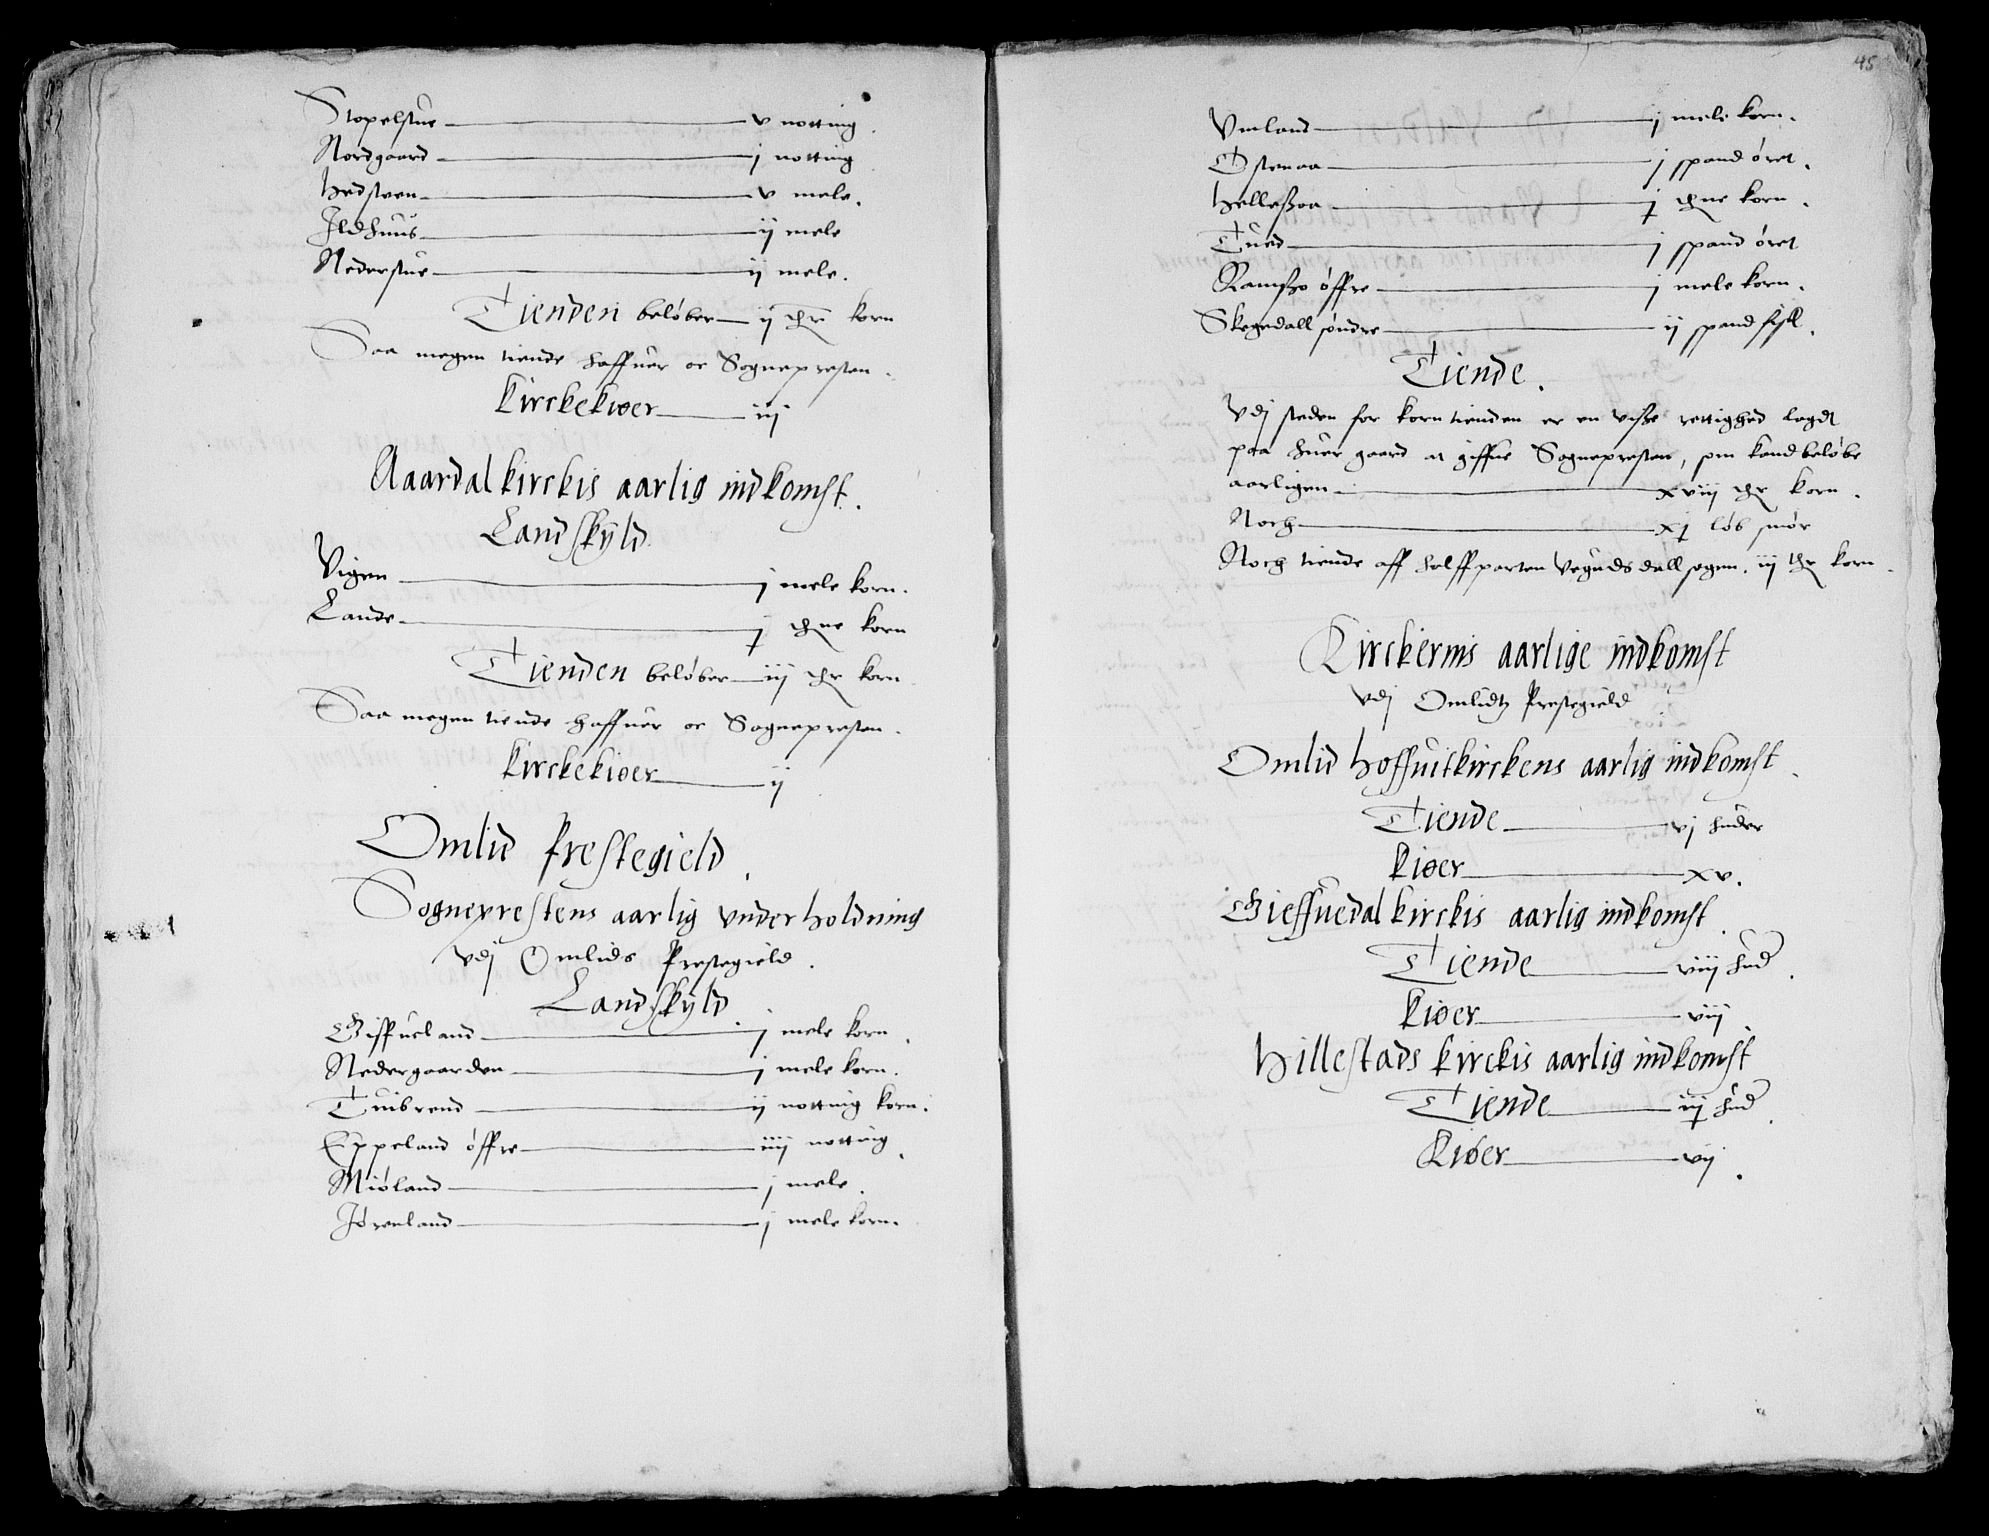 Stopelstue v notting.
Nordgaard j notting
Hedsteen v mele.
Ildhuus ij mele
Nederstue ij mele.
Tienden beløber ij thr korn
Saa megen tiende haffuer oc Sognepresten.
Kirckekiøer iij
Aaardal kirckis aarlig indkomst.
Landskyld.
Vigen j mele korn.
Lande j thne korn
Tienden beløber iij thr korn
Saa megen tiende haffuer oc Sognepresten.
Kirckekiøer ij
Omlid Prestegield.
Sogneprestens aarlig vnderholdning
vdj Omlids Prestegield.
Landskyld.
Giffueland j mele korn.
Nedergaarden j mele korn.
Tuibrend ij notting korn.
Eppeland øffre iiij notting.
Miøland j mele.
Jørenland j mele korn.
45
Vmland j mele korn.
Østenaa j spand øret.
Helleszaa j thne korn.
Tued j spand øret
Ramszo øffre j mele korn.
Skegedall søndre ij spand fisk.
Tiende.
Vdj steden for korn tienden er en visze rettighed lagdt
paa huer gaard at giffue Sognepresten, som kand beløbe
aarligen xviij thr korn.
Noch xj løb smør
Noch tiende aff halffparten Vegudsdall sogen. iij thr korn.
Kirckernis aarlige indkomst
vdj Omlidtz Prestegield
Omlid hoffuitkirckens aarlig indkomst.
Tiende vj huder
Kiøer xv.
Gieffuedal kirckis aarlig indkomst.
Tiende viij hud.
Kiøer viij
Hillestads kirckis aarlig indkomst
Tiende iij hud.
Kiøer vij.